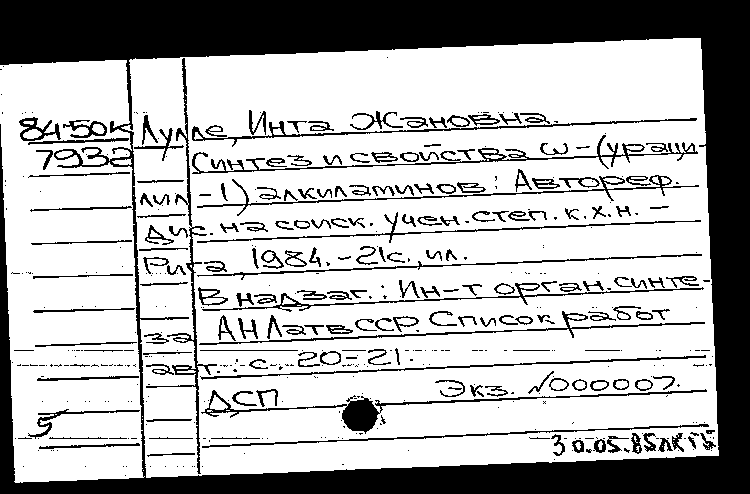 84-50к Лулле, Инта Жановна.
7932 Синтез и свойства ω-(ураци-
лил-1)алкиламинов: Автореф.
Дис. на соиск. учен. степ. к.х.н. —
Рига, 1984. - 21с., ил.
В надзаг.: Ин-т орган. синте-
за АН Латв ССР. Список работ
авт.: с. 20-21.
ДСП Экз. №000007.
5
30.05.85